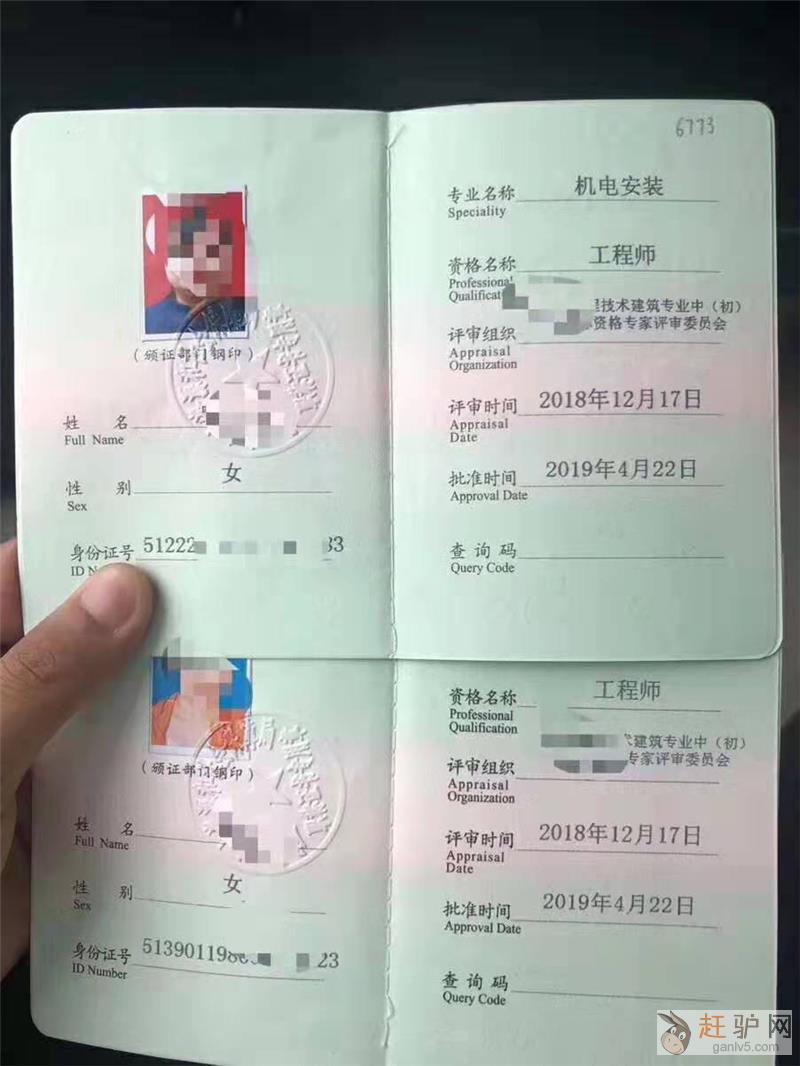 6773
专业名称 机电安装
Speciality
资格名称 工程师
Professional
Qualificat
程技术建筑专业中（初）
资格专家评审委员会
评审组织
Appraisal
Organization
评审时间 2018年12月17日
Appraisal
Date
批准时间 2019年4月22日
Approval Date
查询码
Query Code
（颁证部门钢印）
姓名
Full Name
性别 女
Sex
身份证号 51222 33
ID N
资格名称 工程师
Professional
Qualification
术建筑专业中（初）
专家评审委员会
评审组织
Appraisal
Organization
评审时间 2018年12月17日
Appraisal
Date
批准时间 2019年4月22日
Approval Date
查询码
Query Code
（颁证部门钢印）
姓名
Full Name
性别 女
Sex
身份证号 513901198 23
ID Number
赶驴网
ganlv5.com